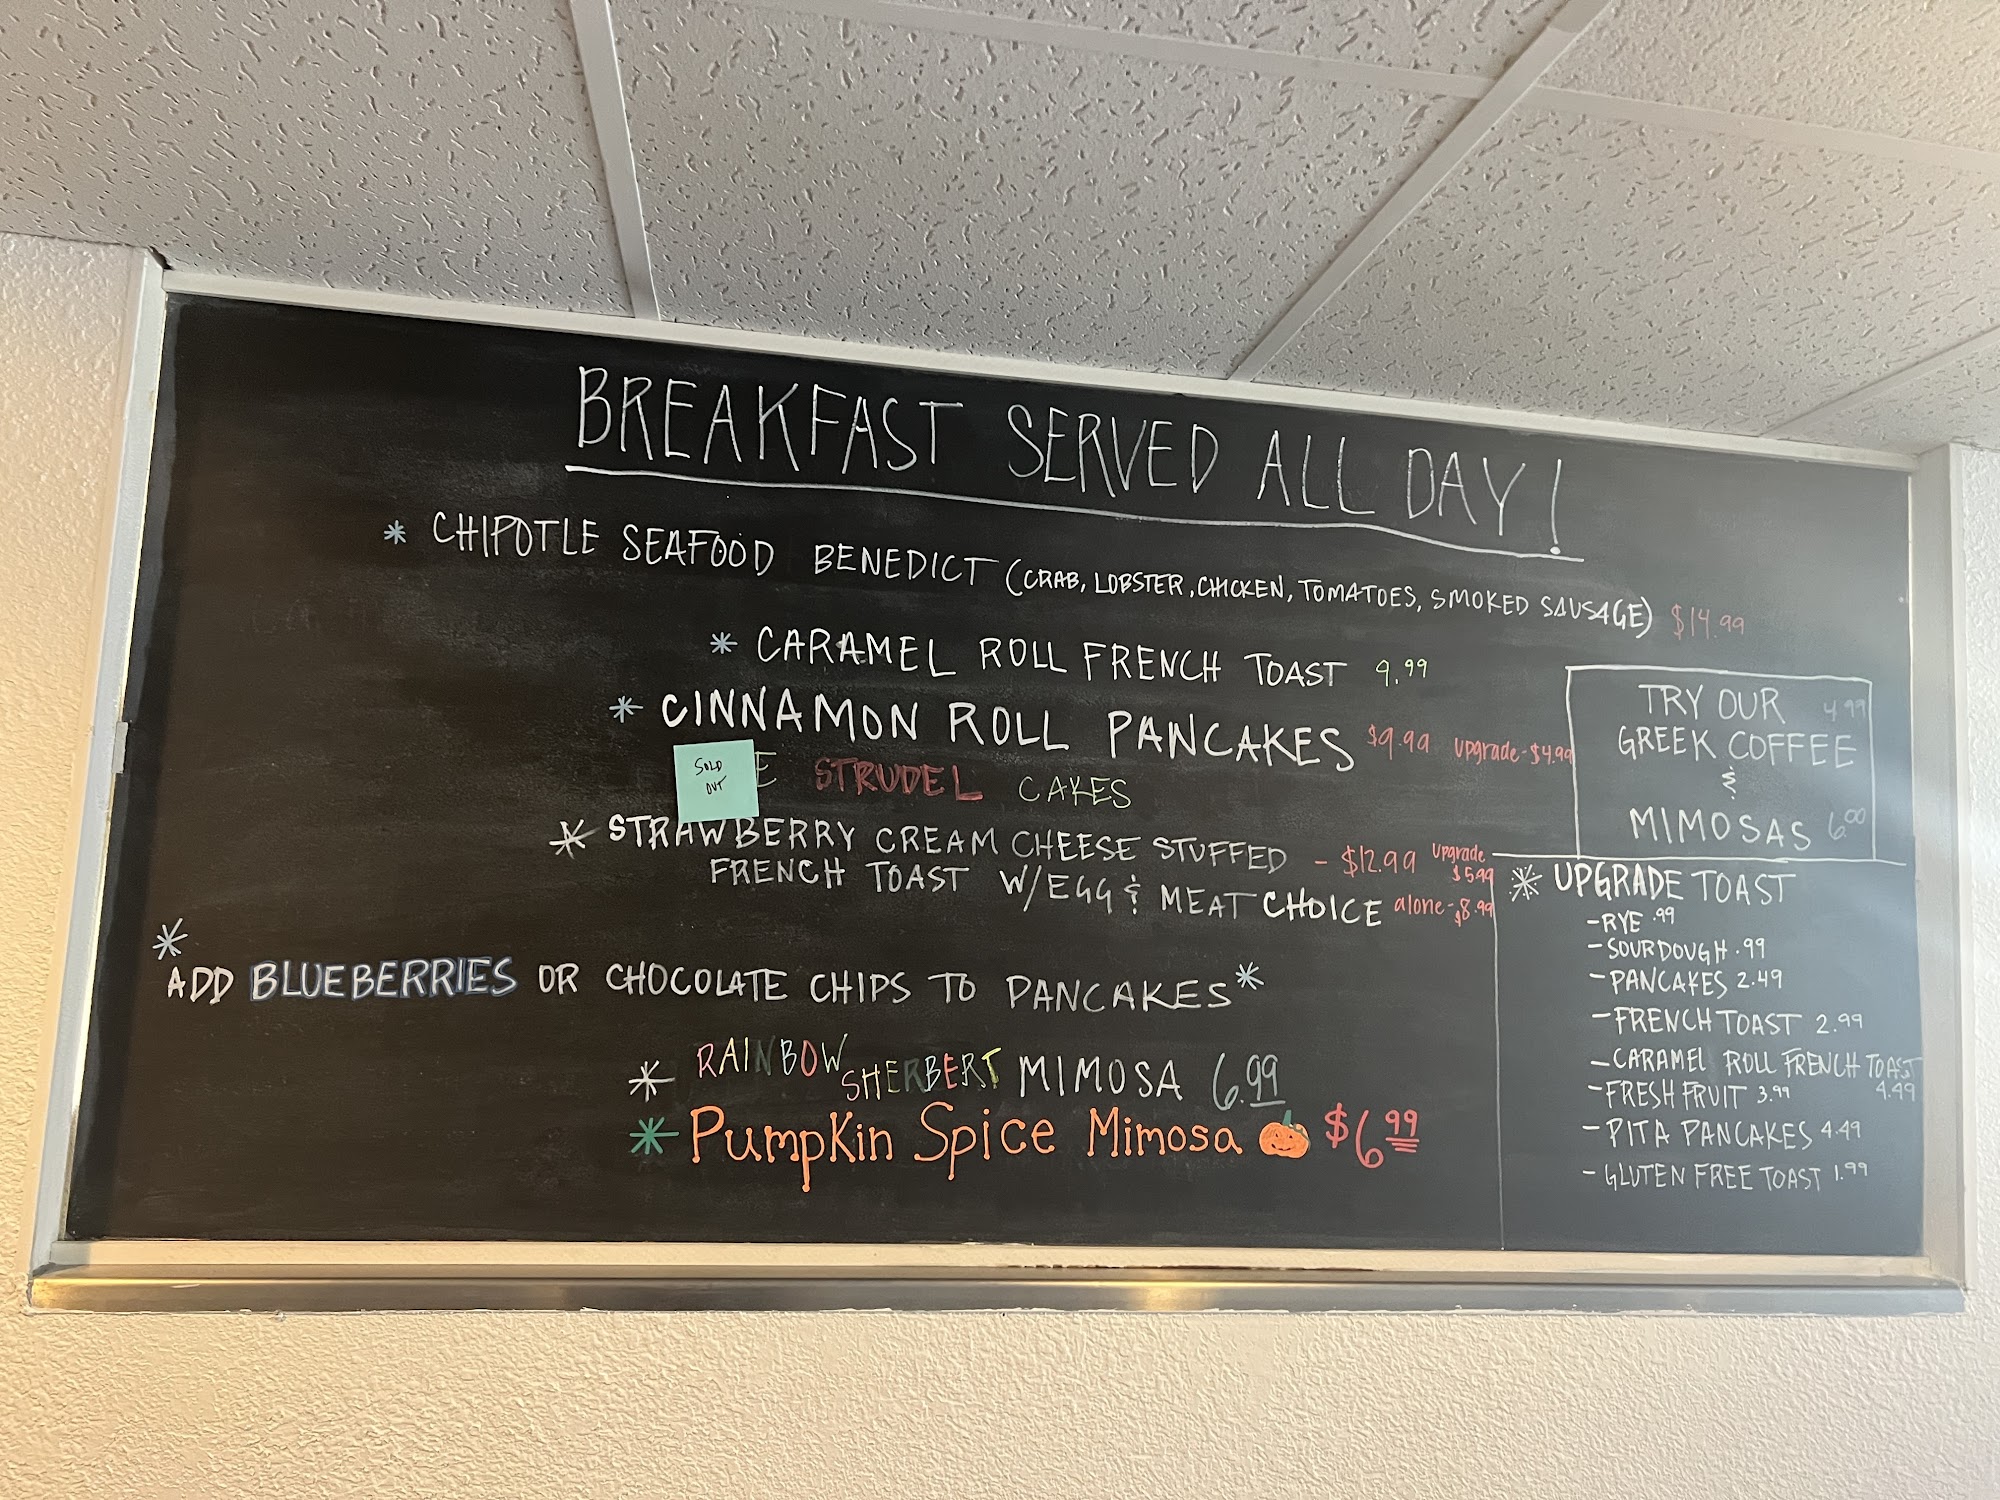 BREAKFAST SERVED ALL DAY!
* CHIPOTLE SEAFOOD BENEDICT (CRAB, LOBSTER, CHICKEN, TOMATOES, SMOKED SAUSAGE) $14.99
* CARAMEL ROLL FRENCH TOAST 9.99
* CINNAMON ROLL PANCAKES $9.99 upgrade-$4.99
SOLD
OUT
E STRUDEL CAKES
* STRAWBERRY CREAM CHEESE STUFFED - $12.99 upgrade $5.99
FRENCH TOAST W/EGG & MEAT CHOICE alone-$8.99
* ADD BLUEBERRIES OR CHOCOLATE CHIPS TO PANCAKES *
* RAINBOW SHERBERT MIMOSA 6.99
* Pumpkin Spice Mimosa $6.99
TRY OUR 4.99
GREEK COFFEE
&
MIMOSAS 6.00
* UPGRADE TOAST
- RYE .99
- SOURDOUGH .99
- PANCAKES 2.49
- FRENCH TOAST 2.99
- CARAMEL ROLL FRENCH TOAST 4.49
- FRESH FRUIT 3.99
- PITA PANCAKES 4.49
- GLUTEN FREE TOAST 1.99